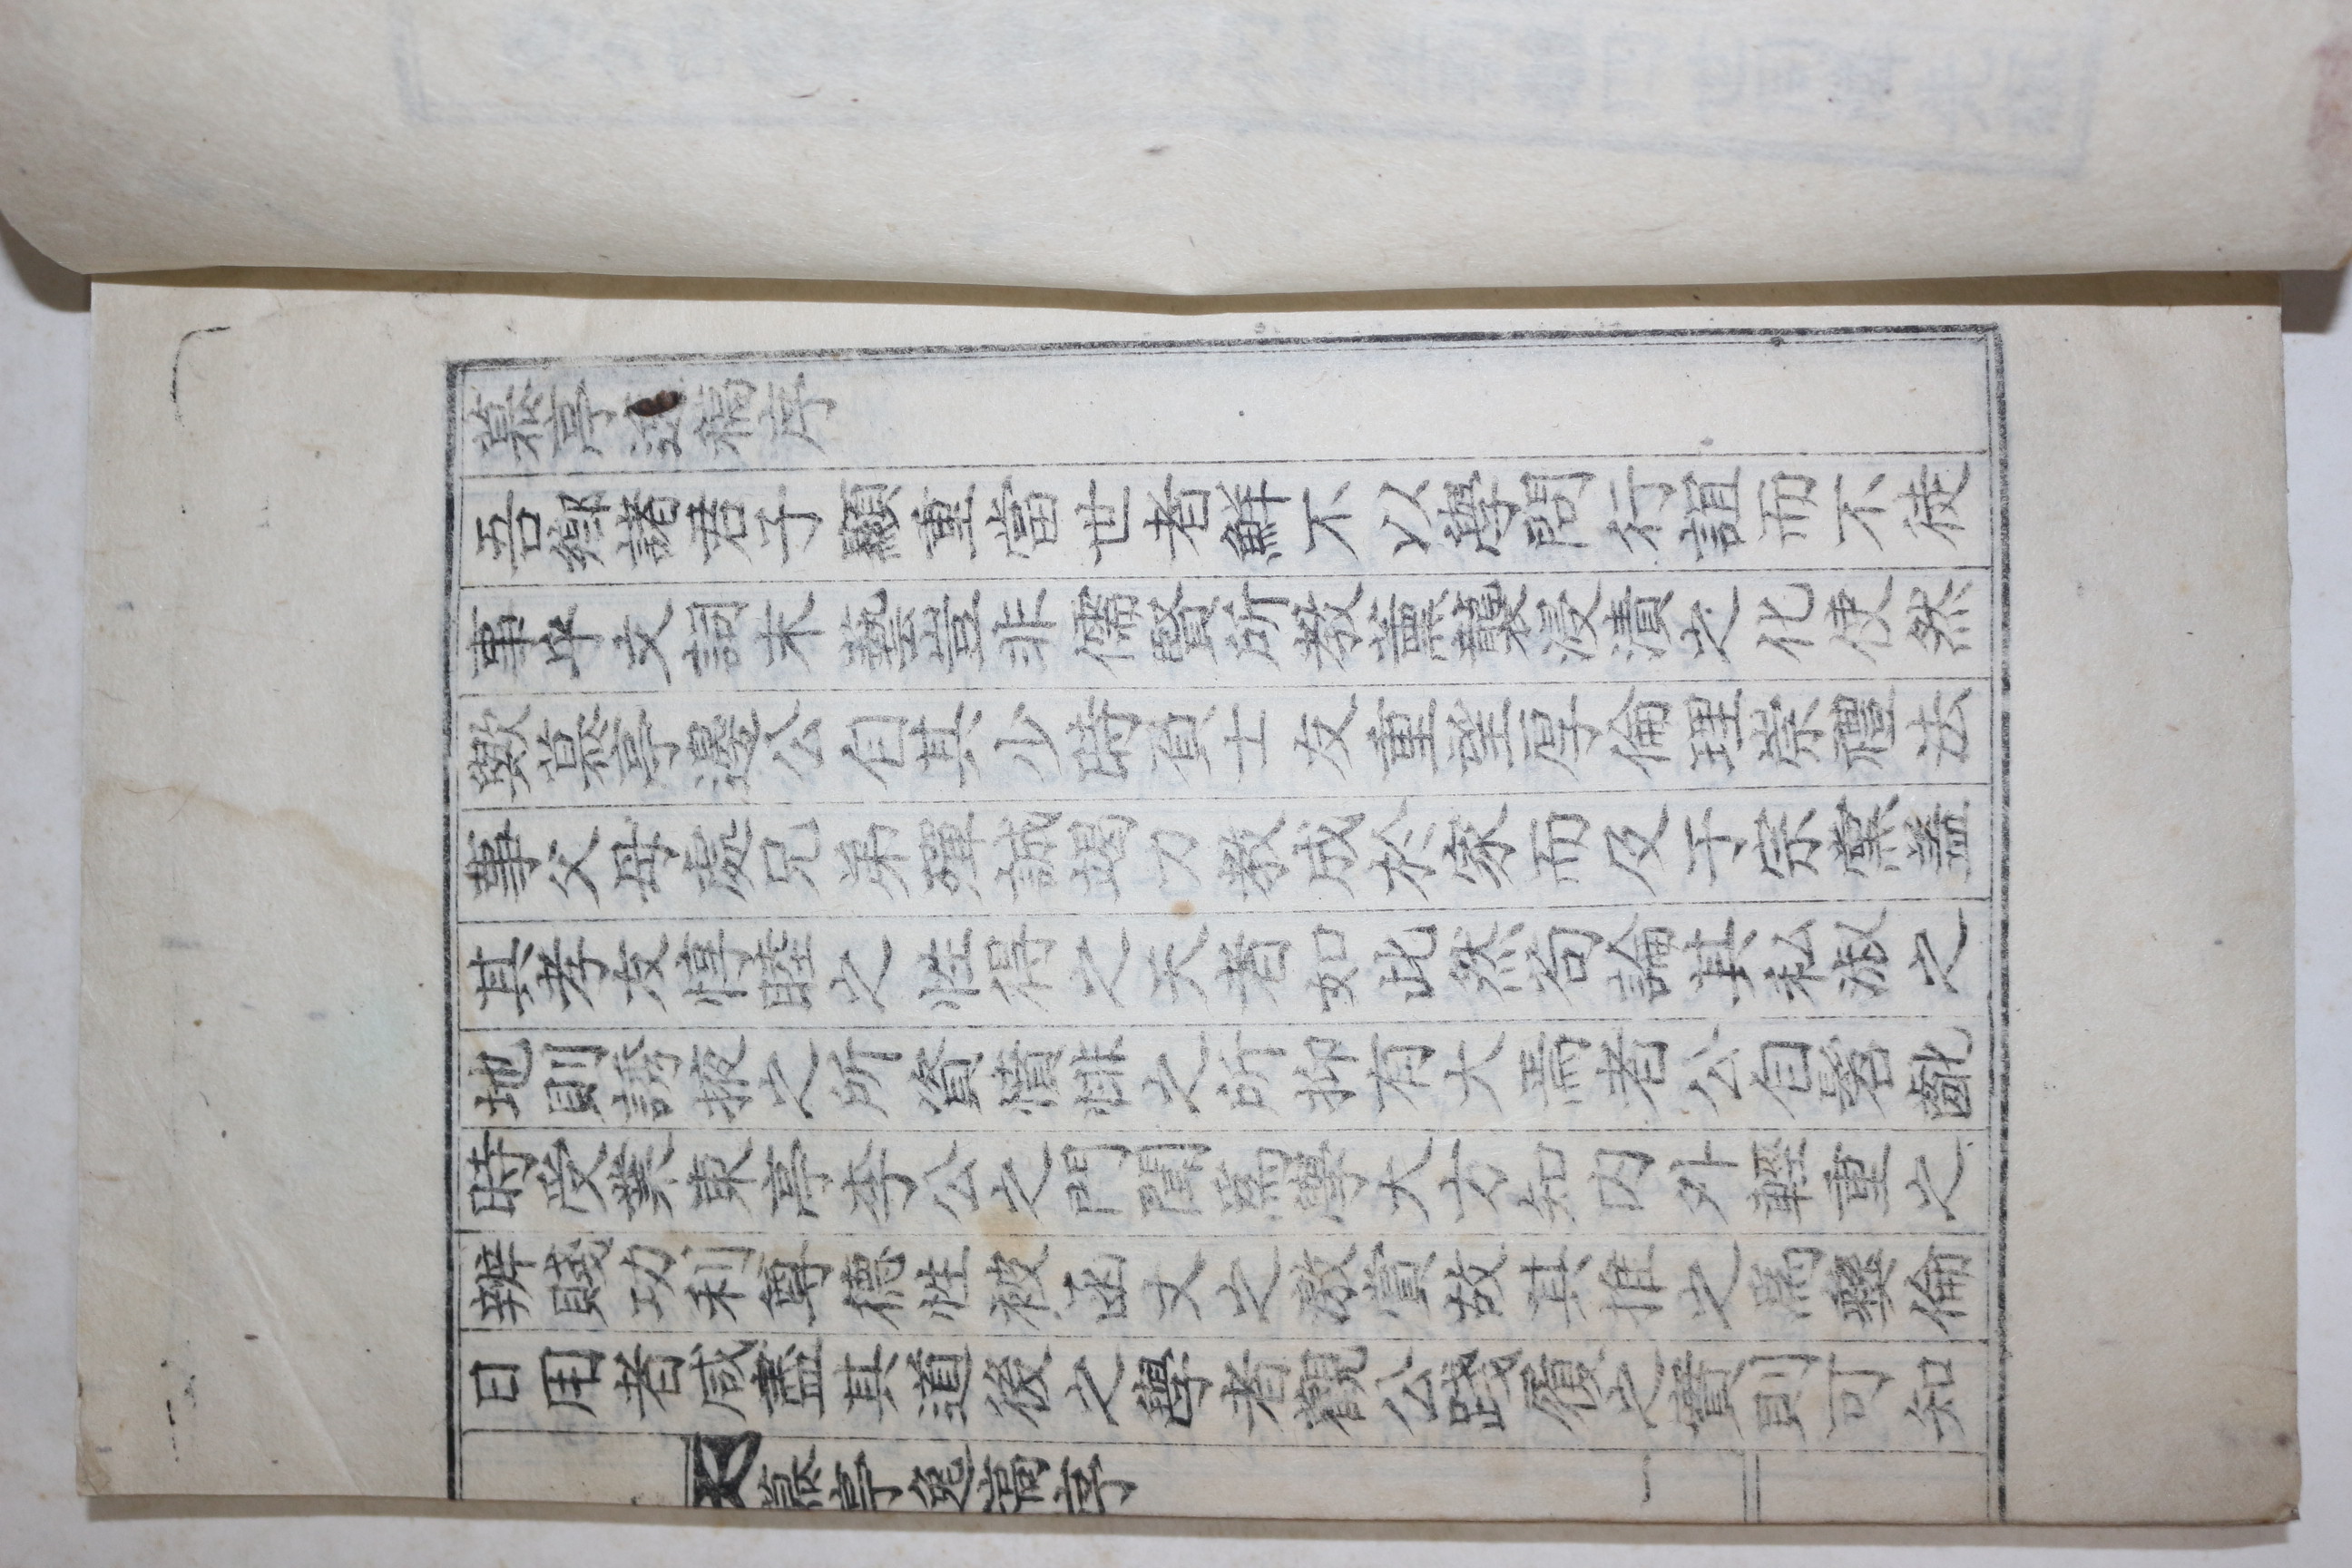 慕亭逸稿序
吾鄉諸君子顯重當世者鮮不以學問行誼而不徒
事乎文詞末藝豈非儒賢所教薰襲浸漬之化使然
歟慕亭邊公自其少時負士友重望厚倫理崇禮法
事父母處兄弟殫誠竭力教成於家而及于宗黨盖
其孝友惇睦之性得之天者如此然苟論其私淑之
地則誘掖之所資憤悱之所抑有大焉者公自髫齔
時受業東亭李公之門聞爲學大方知內外輕重之
辨賤功利尊德性被函丈之激賞故其推之爲彜倫
日用者咸盡其道後之學者觀公踐履之實則可知
慕亭逸稿序
一